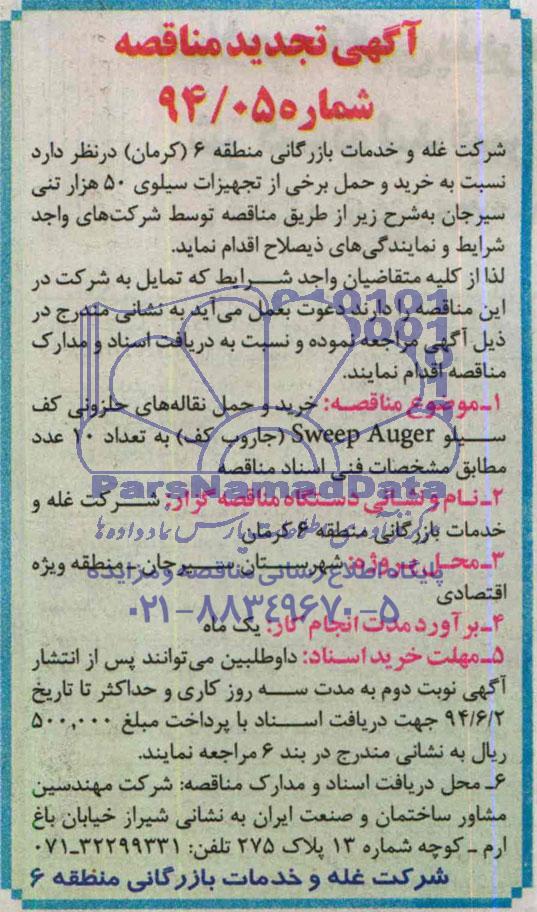 آگهی تجدید مناقصه
شماره ۹۴/۰۵
شرکت غله و خدمات بازرگانی منطقه ۶ (کرمان) درنظر دارد
نسبت به خرید و حمل برخی از تجهیزات سیلوی ۵۰ هزار تنی
سیرجان به‌شرح زیر از طریق مناقصه توسط شرکت‌های واجد
شرایط و نمایندگی‌های ذیصلاح اقدام نماید.
لذا از کلیه متقاضیان واجد شرایط که تمایل به شرکت در
این مناقصه را دارند دعوت بعمل می‌آید به نشانی مندرج در
ذیل آگهی مراجعه نموده و نسبت به دریافت اسناد و مدارک
مناقصه اقدام نمایند.
۱ـ موضوع مناقصه: خرید و حمل نقاله‌های حلزونی کف
سیلو Sweep Auger (جاروب کف) به تعداد ۱۰ عدد
مطابق مشخصات فنی اسناد مناقصه
ParsNamadData
۲ـ نام و نشانی دستگاه مناقصه گزار: شرکت غله و
خدمات بازرگانی منطقه ۶ کرمان
۳ـ محل پروژه: شهرستان سیرجان ـ منطقه ویژه
پایگاه اطلاع رسانی مناقصه و مزایده
اقتصادی
۰۲۱-۸۸۳۴۹۶۷۰-۵
۴ـ برآورد مدت انجام کار: یک ماه
۵ـ مهلت خرید اسناد: داوطلبین می‌توانند پس از انتشار
آگهی نوبت دوم به مدت سه روز کاری و حداکثر تا تاریخ
۹۴/۶/۲ جهت دریافت اسناد با پرداخت مبلغ ۵۰۰,۰۰۰
ریال به نشانی مندرج در بند ۶ مراجعه نمایند.
۶ـ محل دریافت اسناد و مدارک مناقصه: شرکت مهندسین
مشاور ساختمان و صنعت ایران به نشانی شیراز خیابان باغ
ارم ـ کوچه شماره ۱۳ پلاک ۲۷۵ تلفن: ۳۲۲۹۹۳۳۱ـ۰۷۱
شرکت غله و خدمات بازرگانی منطقه ۶